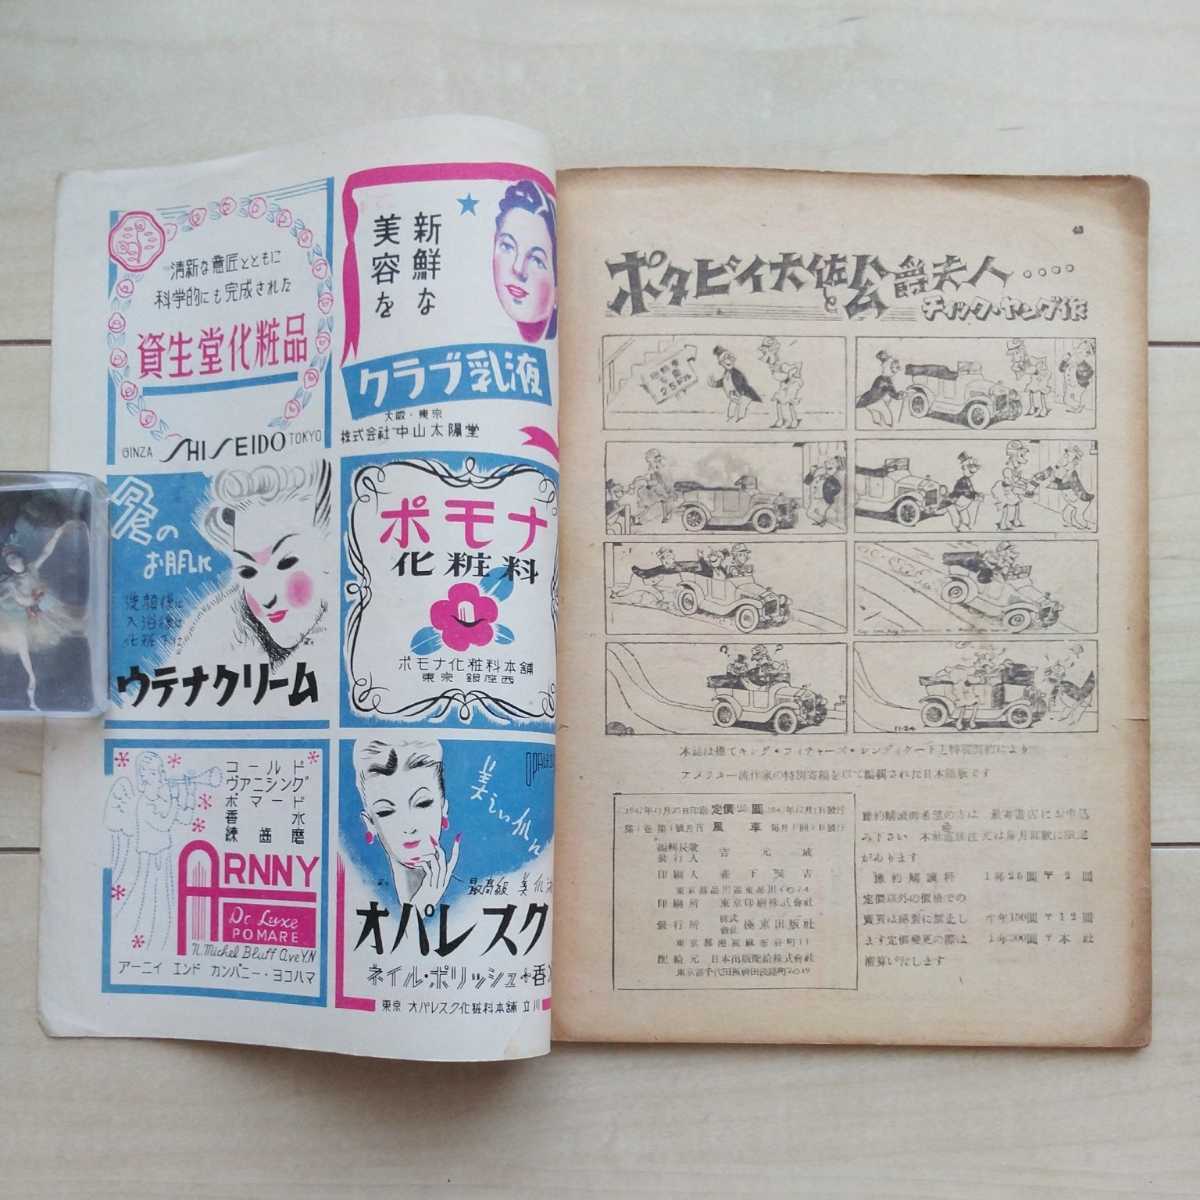 清新な意匠とともに
科学的にも完成された
資生堂化粧品
GINZA SHISEIDO TOKYO
新鮮な
美容を
クラブ乳液
大阪・東京
株式会社 中山太陽堂
冬の
お肌に
洗顔後に
入浴後に
化粧下に
ウテナクリーム
ポモナ
化粧料
ポモナ化粧料本舗
東京 銀座西
コールド
ヴアニシング
ポマード
香水
煉歯磨
ARNNY
De Luxe
POMARE
アーニイ エンド カンパニー・ヨコハマ
美しい爪へ
最高級 美爪
オパレスク
ネイル・ポリッシュ・香水
東京 オパレスク化粧料本舗 立川
43
ポタビイ大佐と公爵夫人‥‥
チック・ヤング作
25
11-24
本誌は總てキング・フィチャーズ・シンディケートと特別契約により
アメリカ一流作家の特別寄稿を以て編輯された日本語版です
定價 圓
風車
編輯兼
發行人
吉元
印刷人
森下
印刷所 東京印刷株式会社
發行所 株式会社 極東出版社
東京都港區麻布
配給元 日本出版配給株式會社
東京都千代田區神田淡路町2の9
豫約購讀御希望の方は 最寄書店にお申込
み下さい
があります
豫約購讀料
定價以外の價格での
賣買は絶對に禁止し
ます定價變更の際は
精算いたします